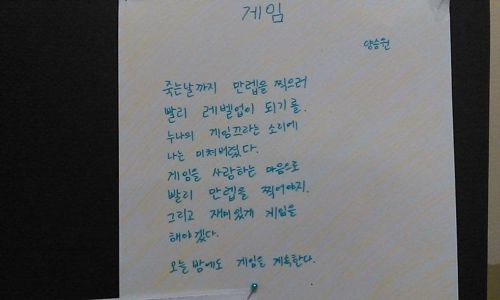 게임
양승원
죽는날까지 만렙을 찍으러
빨리 레벨업이 되기를.
누나의 게임끄라는 소리에
나는 미쳐버렸다.
게임을 사랑하는 마음으로
빨리 만렙을 찍어야지.
그리고 재미있게 게임을
해야겠다.
오늘 밤에도 게임을 계속한다.